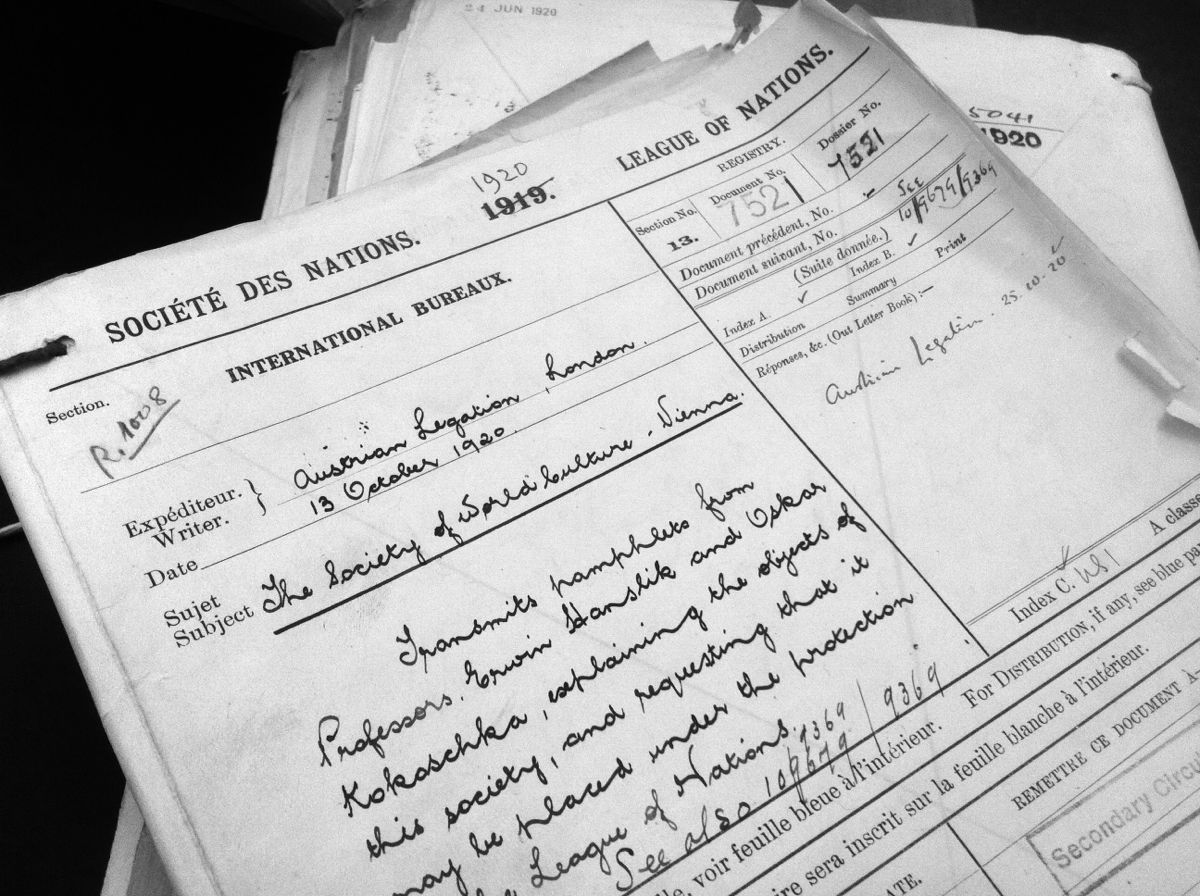 24 JUN 1920
5041
1920
SOCIÉTÉ DES NATIONS.
1920
1919.
LEAGUE OF NATIONS.
INTERNATIONAL BUREAUX.
REGISTRY.
Section No.
13.
Document No.
7521
Dossier No.
7521
Document précédent, No. -
Document suivant, No.
(Suite donnée.)
See
10/9679/9369
Index A. ✓
Index B. ✓
Distribution
Summary
Print
Réponses, &c. (Out Letter Book) :—
Austrian Legation. 25.10.20
Section.
R.1008
Expéditeur. }
Writer.
Austrian Legation, London.
Date
13 October 1920.
Sujet
Subject
The Society of World Culture - Vienna.
Transmits pamphlets from
Professors, Erwin Hanslik and Oskar
Kokoschka, explaining the objects of
this society, and requesting that it
may be placed under the protection
League of Nations.
See also 10/9679 / 9369
9369
Index C.
A classe
For DISTRIBUTION, if any, see blue pa
voir feuille bleue à l'intérieur.
ire sera inscrit sur la feuille blanche à l'intérieur.
REMETTRE CE DOCUMENT À
ATE.
Secondary Circu